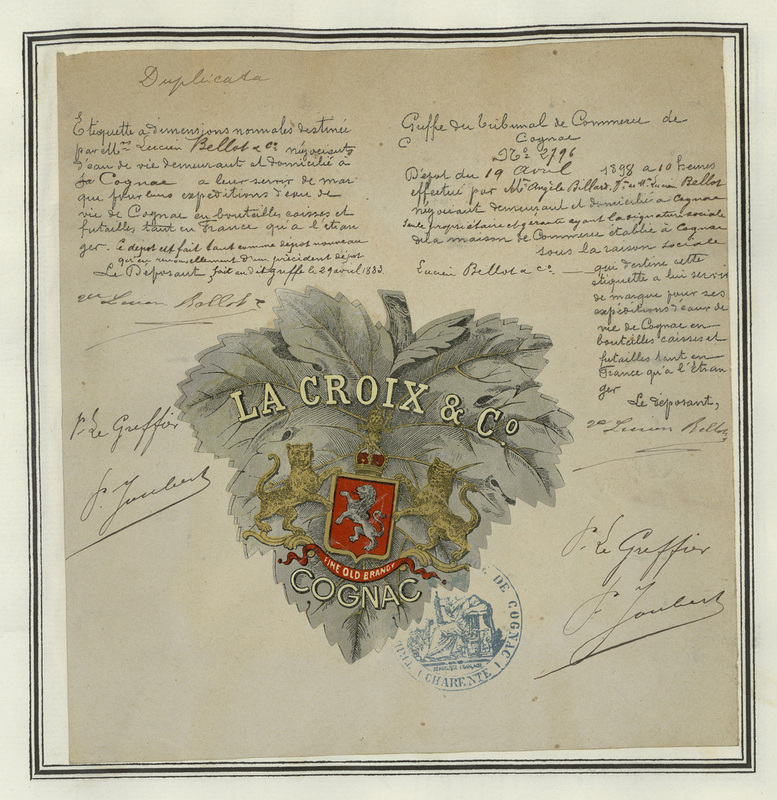 Duplicata
Etiquette a dimensions normales destinée
par Mme Lucien Bellot & Co négociants
d'eau de vie demeurant et domicilié à
Cognac a leur servir de mar
que pour leurs expéditions d'eau de
vie de Cognac en bouteilles caisses et
futailles tant en France qu'a l'étran
ger. Ce dépot est fait tant comme dépot nouveau
qu'en renouvellement d'un précédent dépot
Le Déposant fait au dit Greffe le 29 avril 1883.
Lucien Bellot
Pr Le Greffier
P. Joubert
Greffe du Tribunal de Commerce de
C Cognac
No 2796
Dépot du 19 Avril 1898 a 10 heures
effectué par Me Angèle Billard, Lucien Bellot
négociant demeurant et domicilié a Cognac
Seule propriétaire et gérante ayant la signature sociale
de la maison de Commerce établie à Cognac
sous la raison sociale
Lucien Bellot & Co — que destine cette
étiquette a lui servir
de marque pour ses
expéditions d'eaux de
vie de Cognac en
bouteilles caisses et
futailles tant en
France qu'a l'étran
ger
Le déposant,
Lucien Bellot
Pr Le Greffier
P. Joubert
LA CROIX & Co
FINE OLD BRANDY
COGNAC
TRIB DE COGNAC
REPUBLIQUE FRANÇAISE
(CHARENTE)